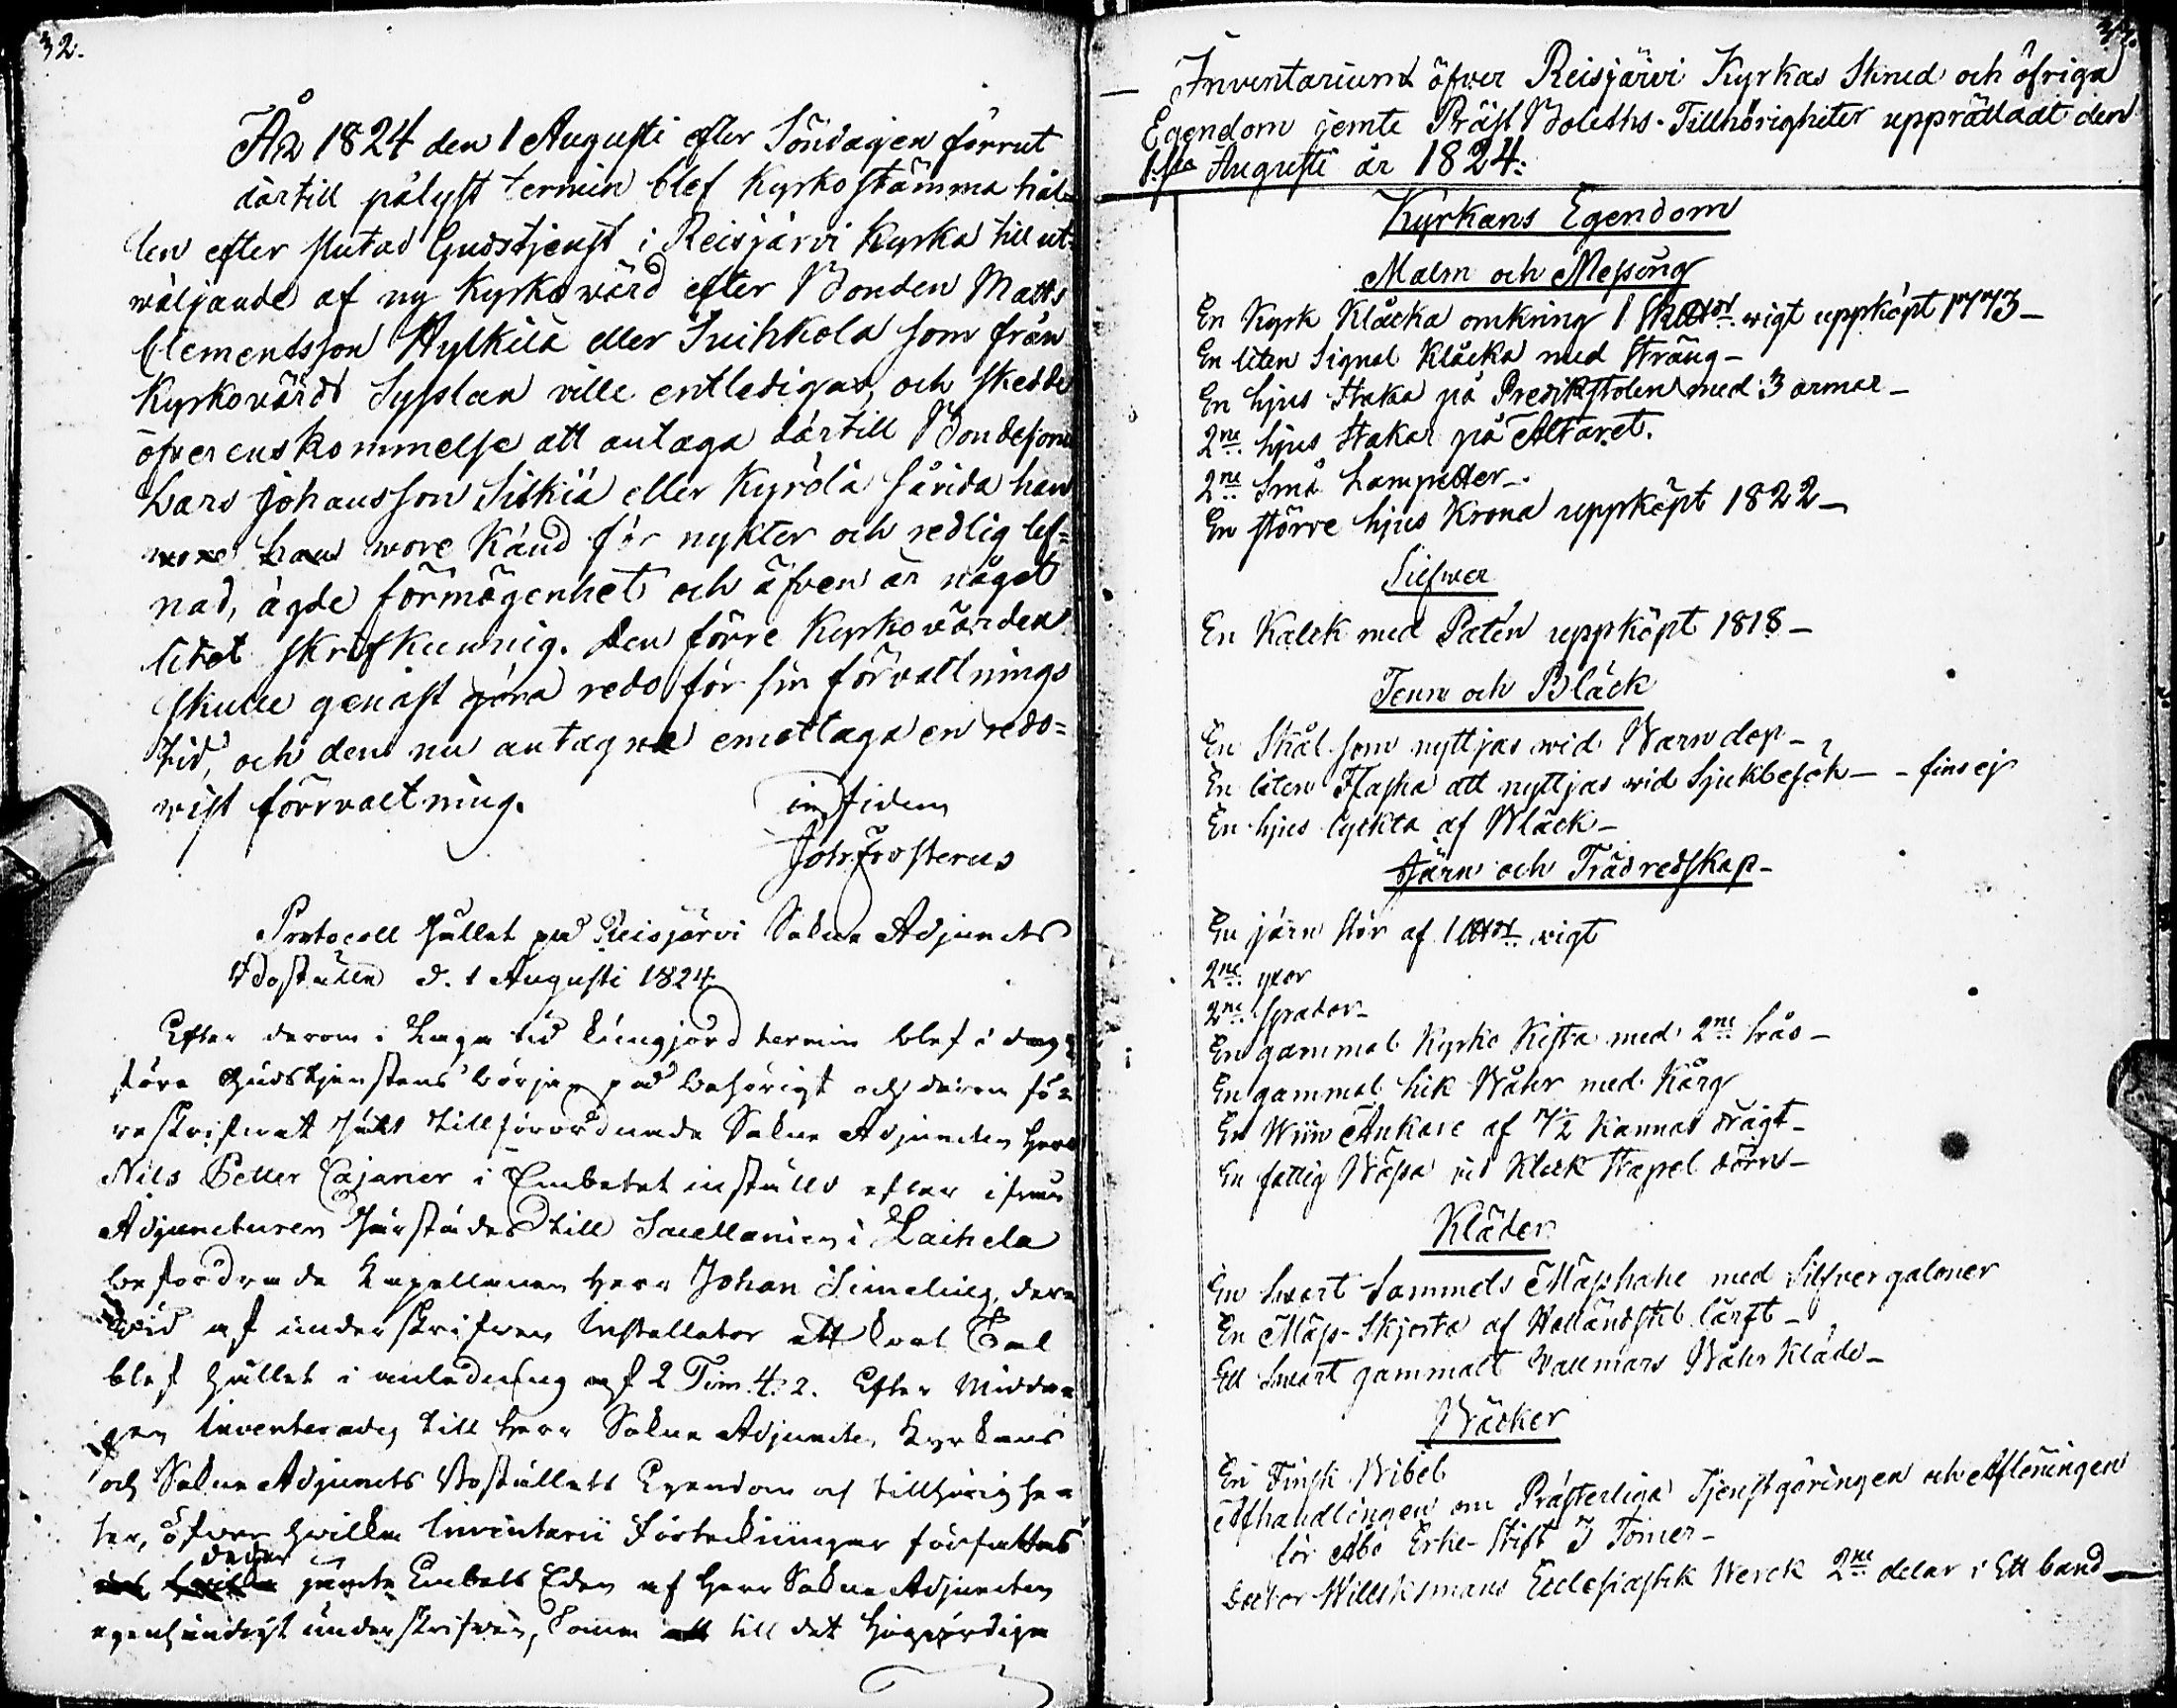 32.
År 1824 den 1 Augusti efter Söndagen förrut
därtill pålyst termin blef Kyrkostämma hål-
len efter slutad Gudstjenst i Reisjärvi Kyrka till ut-
wäljande af ny Kyrkowärd efter Bonden Matts
Clementsson Hylkilä eller Suihkola som från
Kyrkovärds Sysslan ville entledigas, och skedde
öfverenskommelse att antaga därtill Bondeson
Lars Johansson Kyrölä eller
wore känd för nykter och redlig lef=
nad, ägde förmögenhet och äfven är något
litet skrifkunnig. Den förre Kyrkovärden
skulle genast göra redo för sin förvaltnings
tid, och den nu antagne emottaga en redo=
wist förrvaltning.
in fidem
Joh. Frosterus
Protocoll hållet på Reisjärvi Sokne Adjuncts
Boställe d. 1 Augusti 1824.
Efter derom i Laga tid kungjord termin blef i dag
före Gudstjenstens början på behörigt och derom fö=
reskrifvet sätt tillförordnade Sokne Adjuncten Herr
Nils Petter Cajaner i Embetet inställd efter ifrån
Adjuncturen härstädes till Sacellanien i Laihela
befordrade Kapellanen Herr Johan Simelius, der=
wid af underskrifven Installator ett kort Tal
blef hållet i anledning af 2 Tim. 4: 2. Efter Midda=
gen Inventerades till Herr Sokne Adjuncten Kyrkans
och Sokne Adjuncts Boställets Egendom och tillhörighe=
ter, öfver hvilka Inventarii Förteckningar författades
jemte Embets Eden af Herr Sokne Adjuncten
egenhändigt underskrifven, komma till det Högvördiga
33.
Inventarium öfver Reisjärvi Kyrkas Skrud och öfriga
Egendom jemte Präst Boleths-Tillhörigheter upprättadt den
1:sta Augusti år 1824:
Kyrkans Egendom
Malm och Messing
En Kyrk Klåcka omkring 1 wigt uppköpt 1773 –
En liten Signal Klåcka med Sträng –
En ljus Staka på Predikstolen med 3 armar –
2ne ljus Stakar på Altaret.
2ne Små Lampetter –
En större ljus Krona uppköpt 1822 –
Silfwer
En Kalck med Patén uppköpt 1818 –
Tenn och Bläck
En Skål som nyttjas wid Barndop –
En liten Flaska att nyttjas wid Sjukbesök – – fins ej
En ljus lyckta af Bläck –
Järn och Trädredskap –
En järn Stör af 1 wigt
2ne yxor
2ne Spador –
En gammal Kyrko Kista med 2ne lås –
En gammal Lik Bår med Korg
En Wiin Ankare af 7½ Kannas drägt –
En fattig Båssa vid Klock Stapel dörrn –
Kläder
En Swart Sammets Mässhake med Silfver galoner
En Mäss-Skjorta af Holländskt lärft –
Ett Swart gammalt Wallmars Bår Kläde –
Böcker
En Finsk Bibel
Afhandlingen om Prästerliga Tjenstgöringen och Aflöningen
för Åbo Erke-Stift
Doctor Willskmans Ecclesiastik Werck 2ne delar i Ett band –